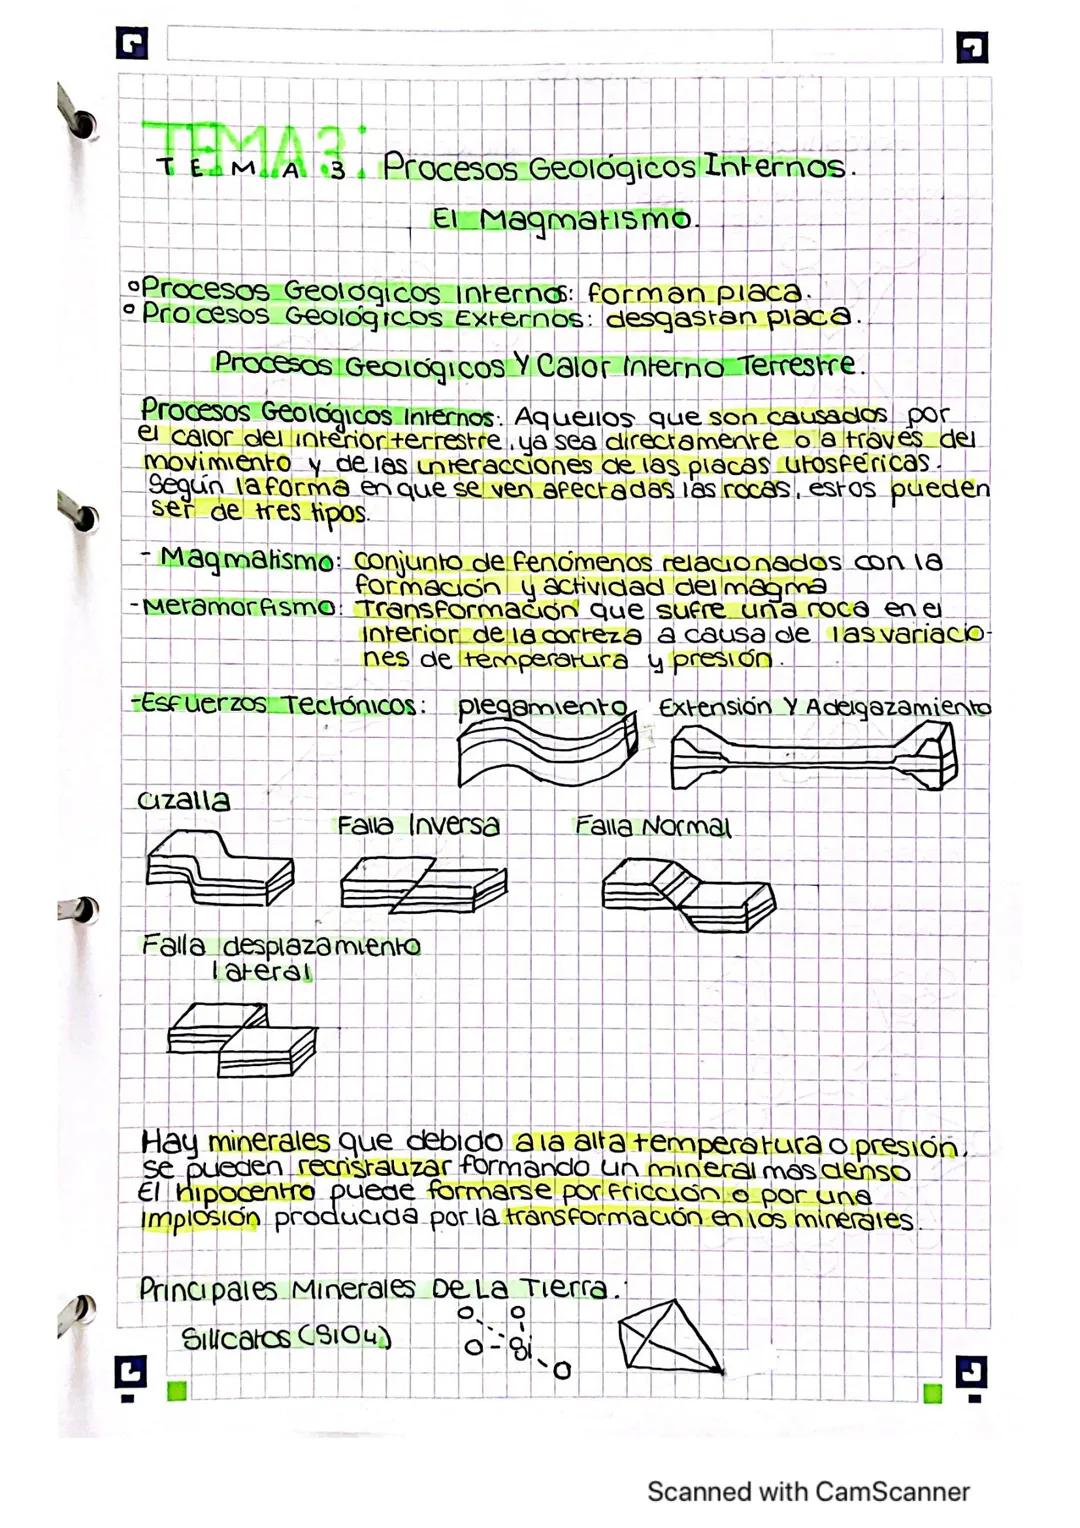 TEMA 3:
TEMA 3: Procesos Geológicos Internos.
El Magmatismo.
Procesos Geológicos Internos: forman placa.
Procesos Geológicos Externos: desgastan placa.
Procesos Geológicos Y Calor Interno Terrestre.
Procesos Geológicos Internos: Aquellos que son causados por
el calor del interior terrestre, ya sea directamente o a través del
movimiento y de las interacciones de las placas litosféricas.
Según la forma en que se ven afectadas las rocas, estos pueden
ser de tres tipos.
- Magmatismo: conjunto de fenómenos relacionados con la
formación y actividad del magma
- Metamorfismo: Transformación que sufre una roca en el
interior de la corteza a causa de las variacio-
nes de temperatura y presión.
- Esfuerzos Tectónicos: plegamiento Extensión Y Adelgazamiento
cizalla
Falla Inversa Falla Normal
Falla desplazamiento
lateral
Hay minerales que debido a la alta temperatura o presión,
se pueden recristalizar formando un mineral más denso
El hipocentro puede formarse por fricción o por una
implosión producida por la transformación en los minerales.
Principales Minerales De La Tierra.:
Silicatos (SiO4)
O O
O - Si
O
Scanned with CamScanner